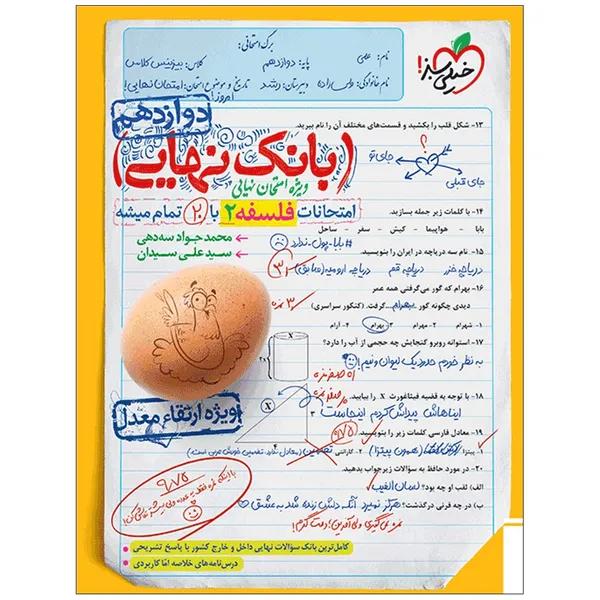 برگ امتحانی:
نام: علی
پایه: دوازدهم
کلاس: بیزینس کلاس
نام خانوادگی: واس راده
دبیرستان: رشد
تاریخ و موضوع امتحان: امتحان نهایی!
امروز!
خیلی سبز!
دوازدهم
(بانک نهایی)
ویژه امتحان نهایی
امتحانات فلسفه ۲ با ۲۰ تمام میشه
محمدجواد سه‌دهی
سید علی سیدان
۱۳- شکل قلب را بکشید و قسمت‌های مختلف آن را نام ببرید.
؟
جای تو
جای قبلی
۱۴- با کلمات زیر جمله بسازید.
بابا - هواپیما - کیش - سفر - ساحل
#بابا-پول-ندارد
۱۵- نام سه دریاچه در ایران را بنویسید.
دریاچه خزر دریاچه قم دریاچه ارومیه (سابق)
۱۶- بهرام که گور می‌گرفتی همه عمر
دیدی چگونه گور بهرام گرفت. (کنکور سراسری)
۱- شهرام ۲- مهرام ۳- بهرام ۴- آرام
۱۷- استوانه روبرو گنجایش چه حجمی از آب را دارد؟
به نظر خودم حدود یک لیوان و نیم!
X
۱۸- با توجه به قضیه فیثاغورث X را بیابید.
ایناهاش پیداش کردم اینجاست
X
۳
۴
۱۹- معادل فارسی کلمات زیر را بنویسید.
۱- پیتزا (همون پیتزا) ۲- گارانتی تضمین
۲۰- در مورد حافظ به سؤالات زیر جواب بدهید.
الف) لقب او چه بود؟ لسان الغیب
ب) در چه قرنی درگذشت؟ هرگز نمیرد آنکه دلش زنده شد به عشق
نمره نمی‌گیری ولی آفرین! دمت گرم!
ویژه ارتقاء معدل
۹/۷۵
کامل‌ترین بانک سؤالات نهایی داخل و خارج کشور با پاسخ تشریحی
درس‌نامه‌های خلاصه امّا کاربردی